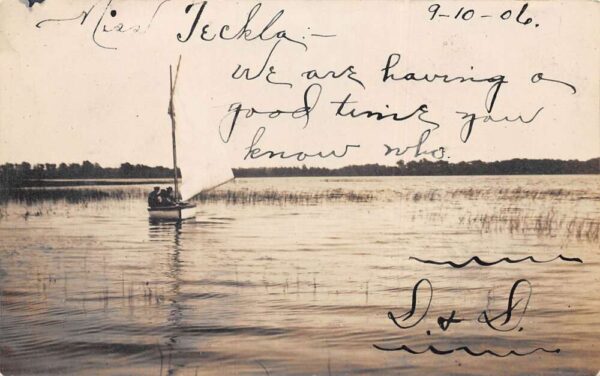 9-10-06.
Miss Teckla:-
We are having a
good time you
know who.
D. & D.